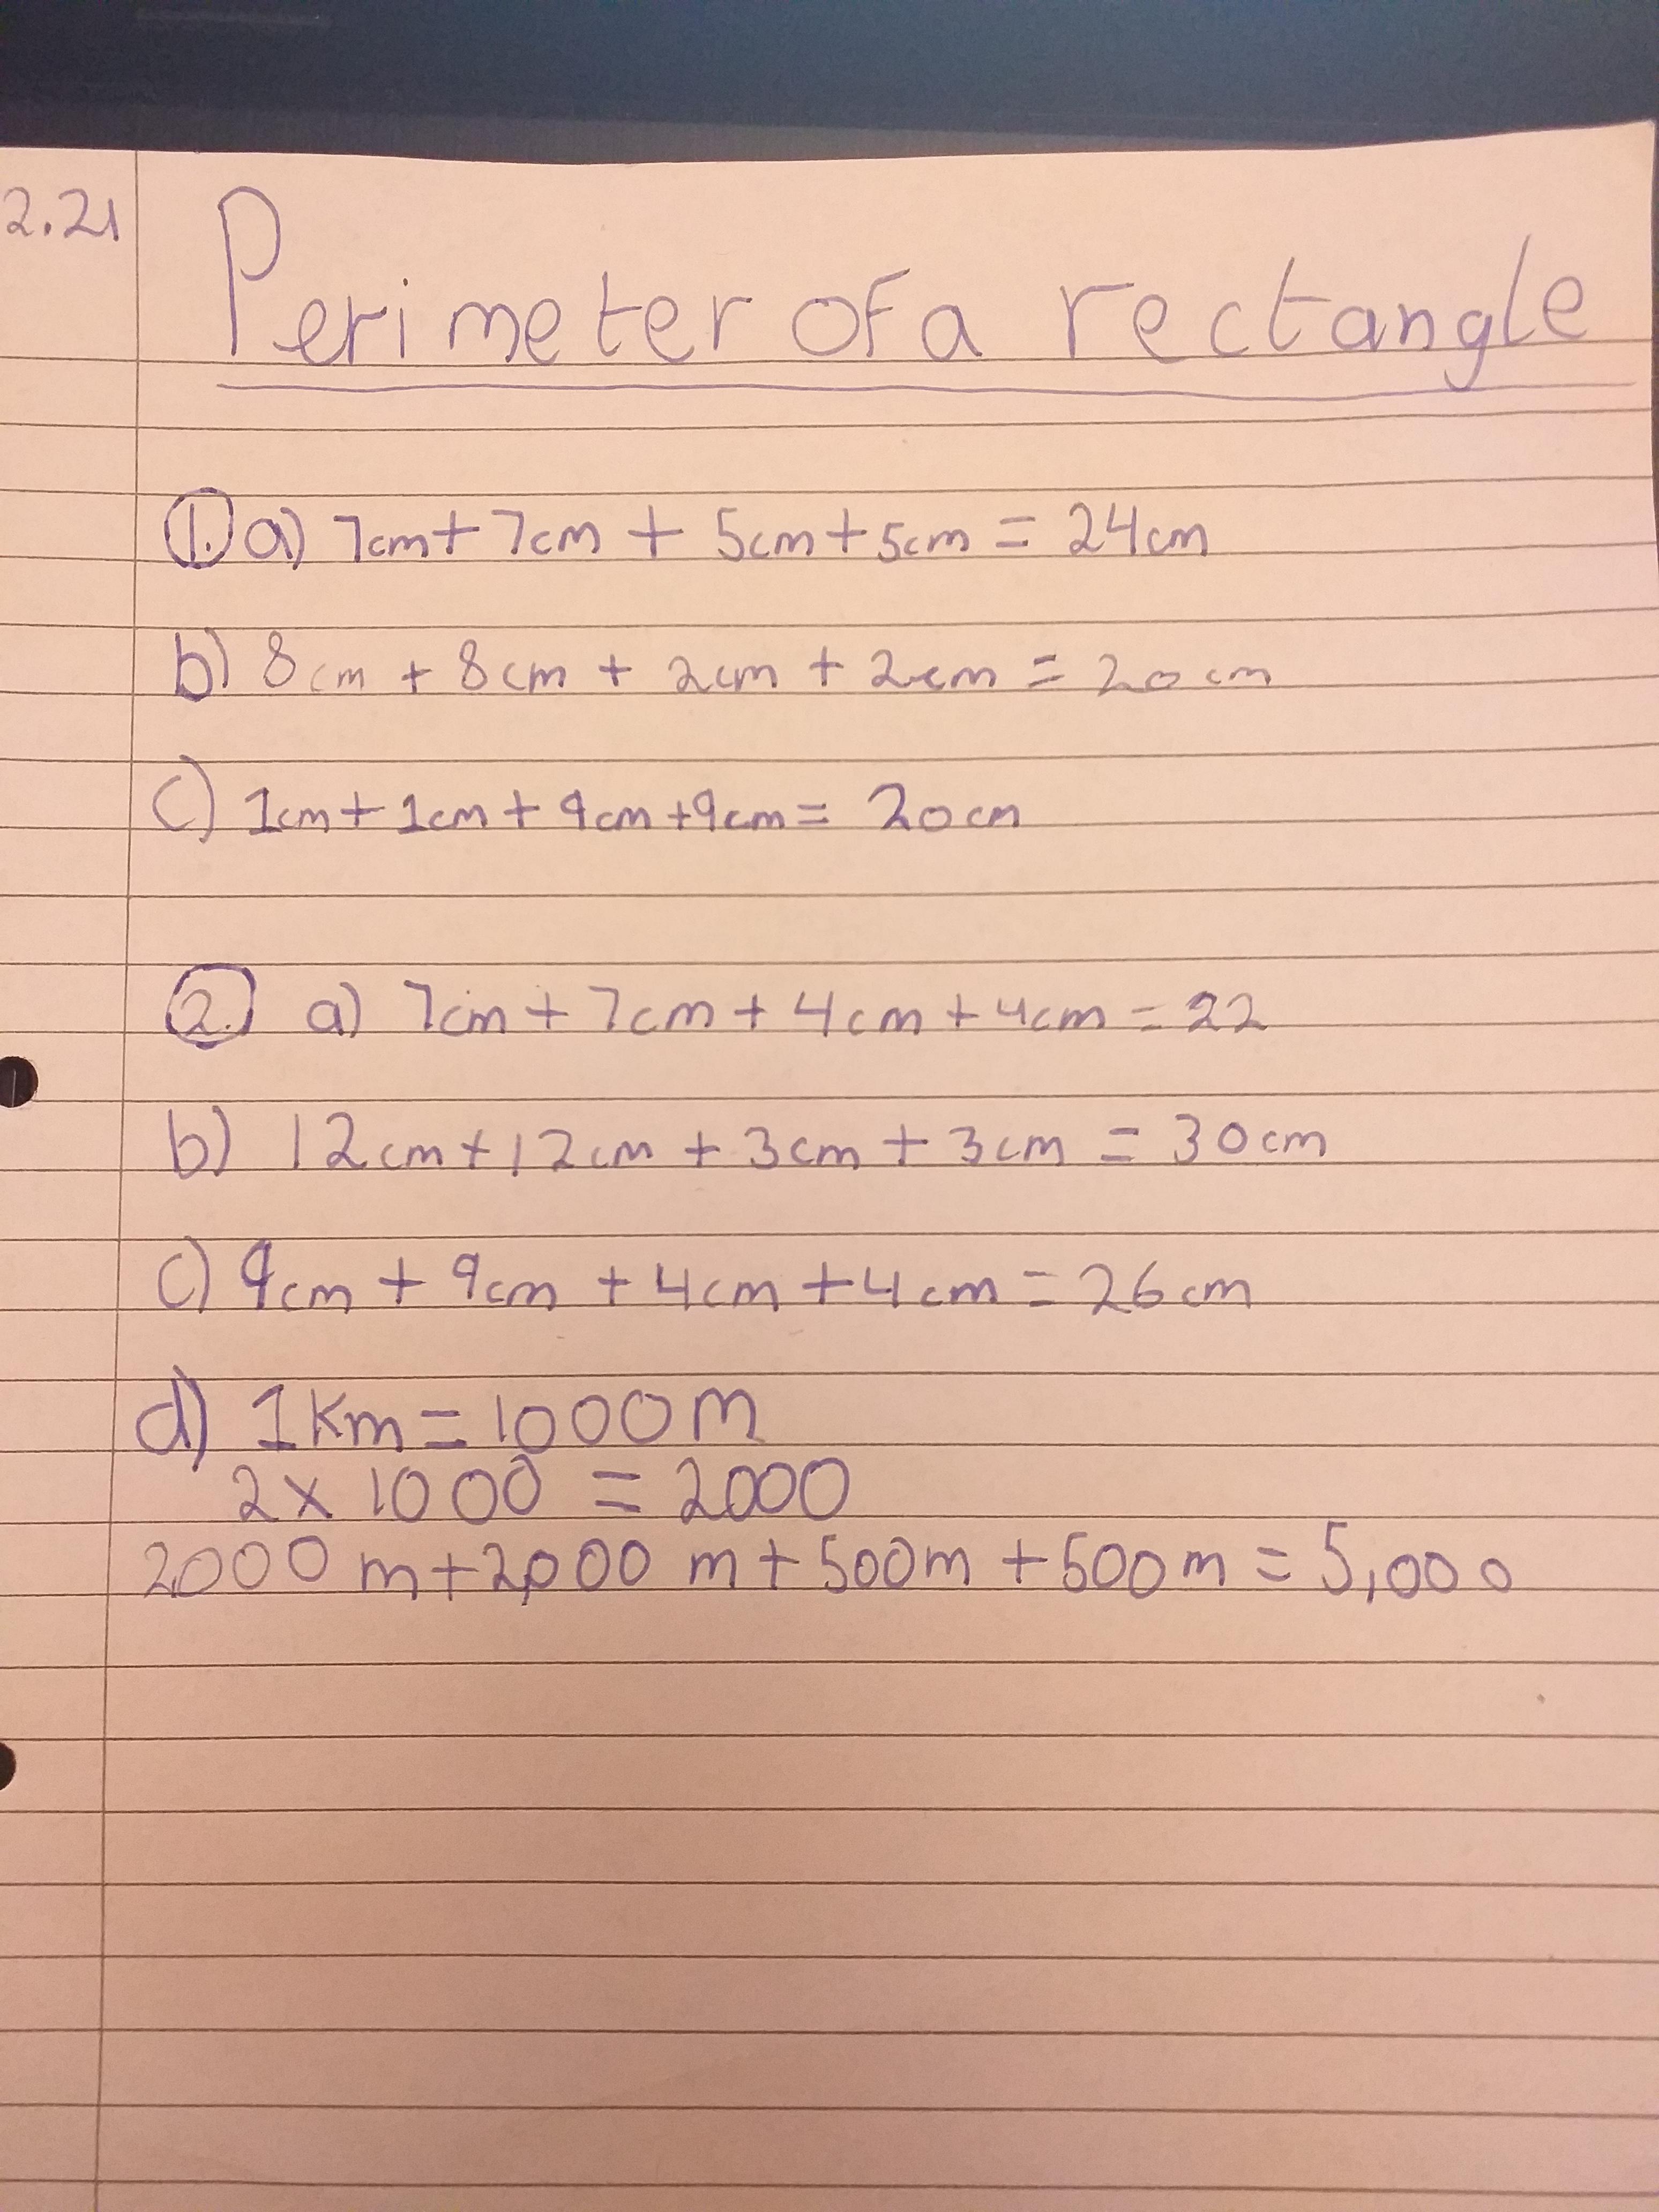 2.21
Perimeter of a rectangle
1. a) 7cm + 7cm + 5cm + 5cm = 24cm
b) 8cm + 8cm + 2cm + 2cm = 20cm
c) 1cm + 1cm + 9cm + 9cm = 20cm
2. a) 7cm + 7cm + 4cm + 4cm = 22
b) 12cm + 12cm + 3cm + 3cm = 30cm
c) 9cm + 9cm + 4cm + 4cm = 26cm
d) 1km = 1000m
2 x 1000 = 2000
2000 m + 2,000 m + 500m + 500m = 5,000